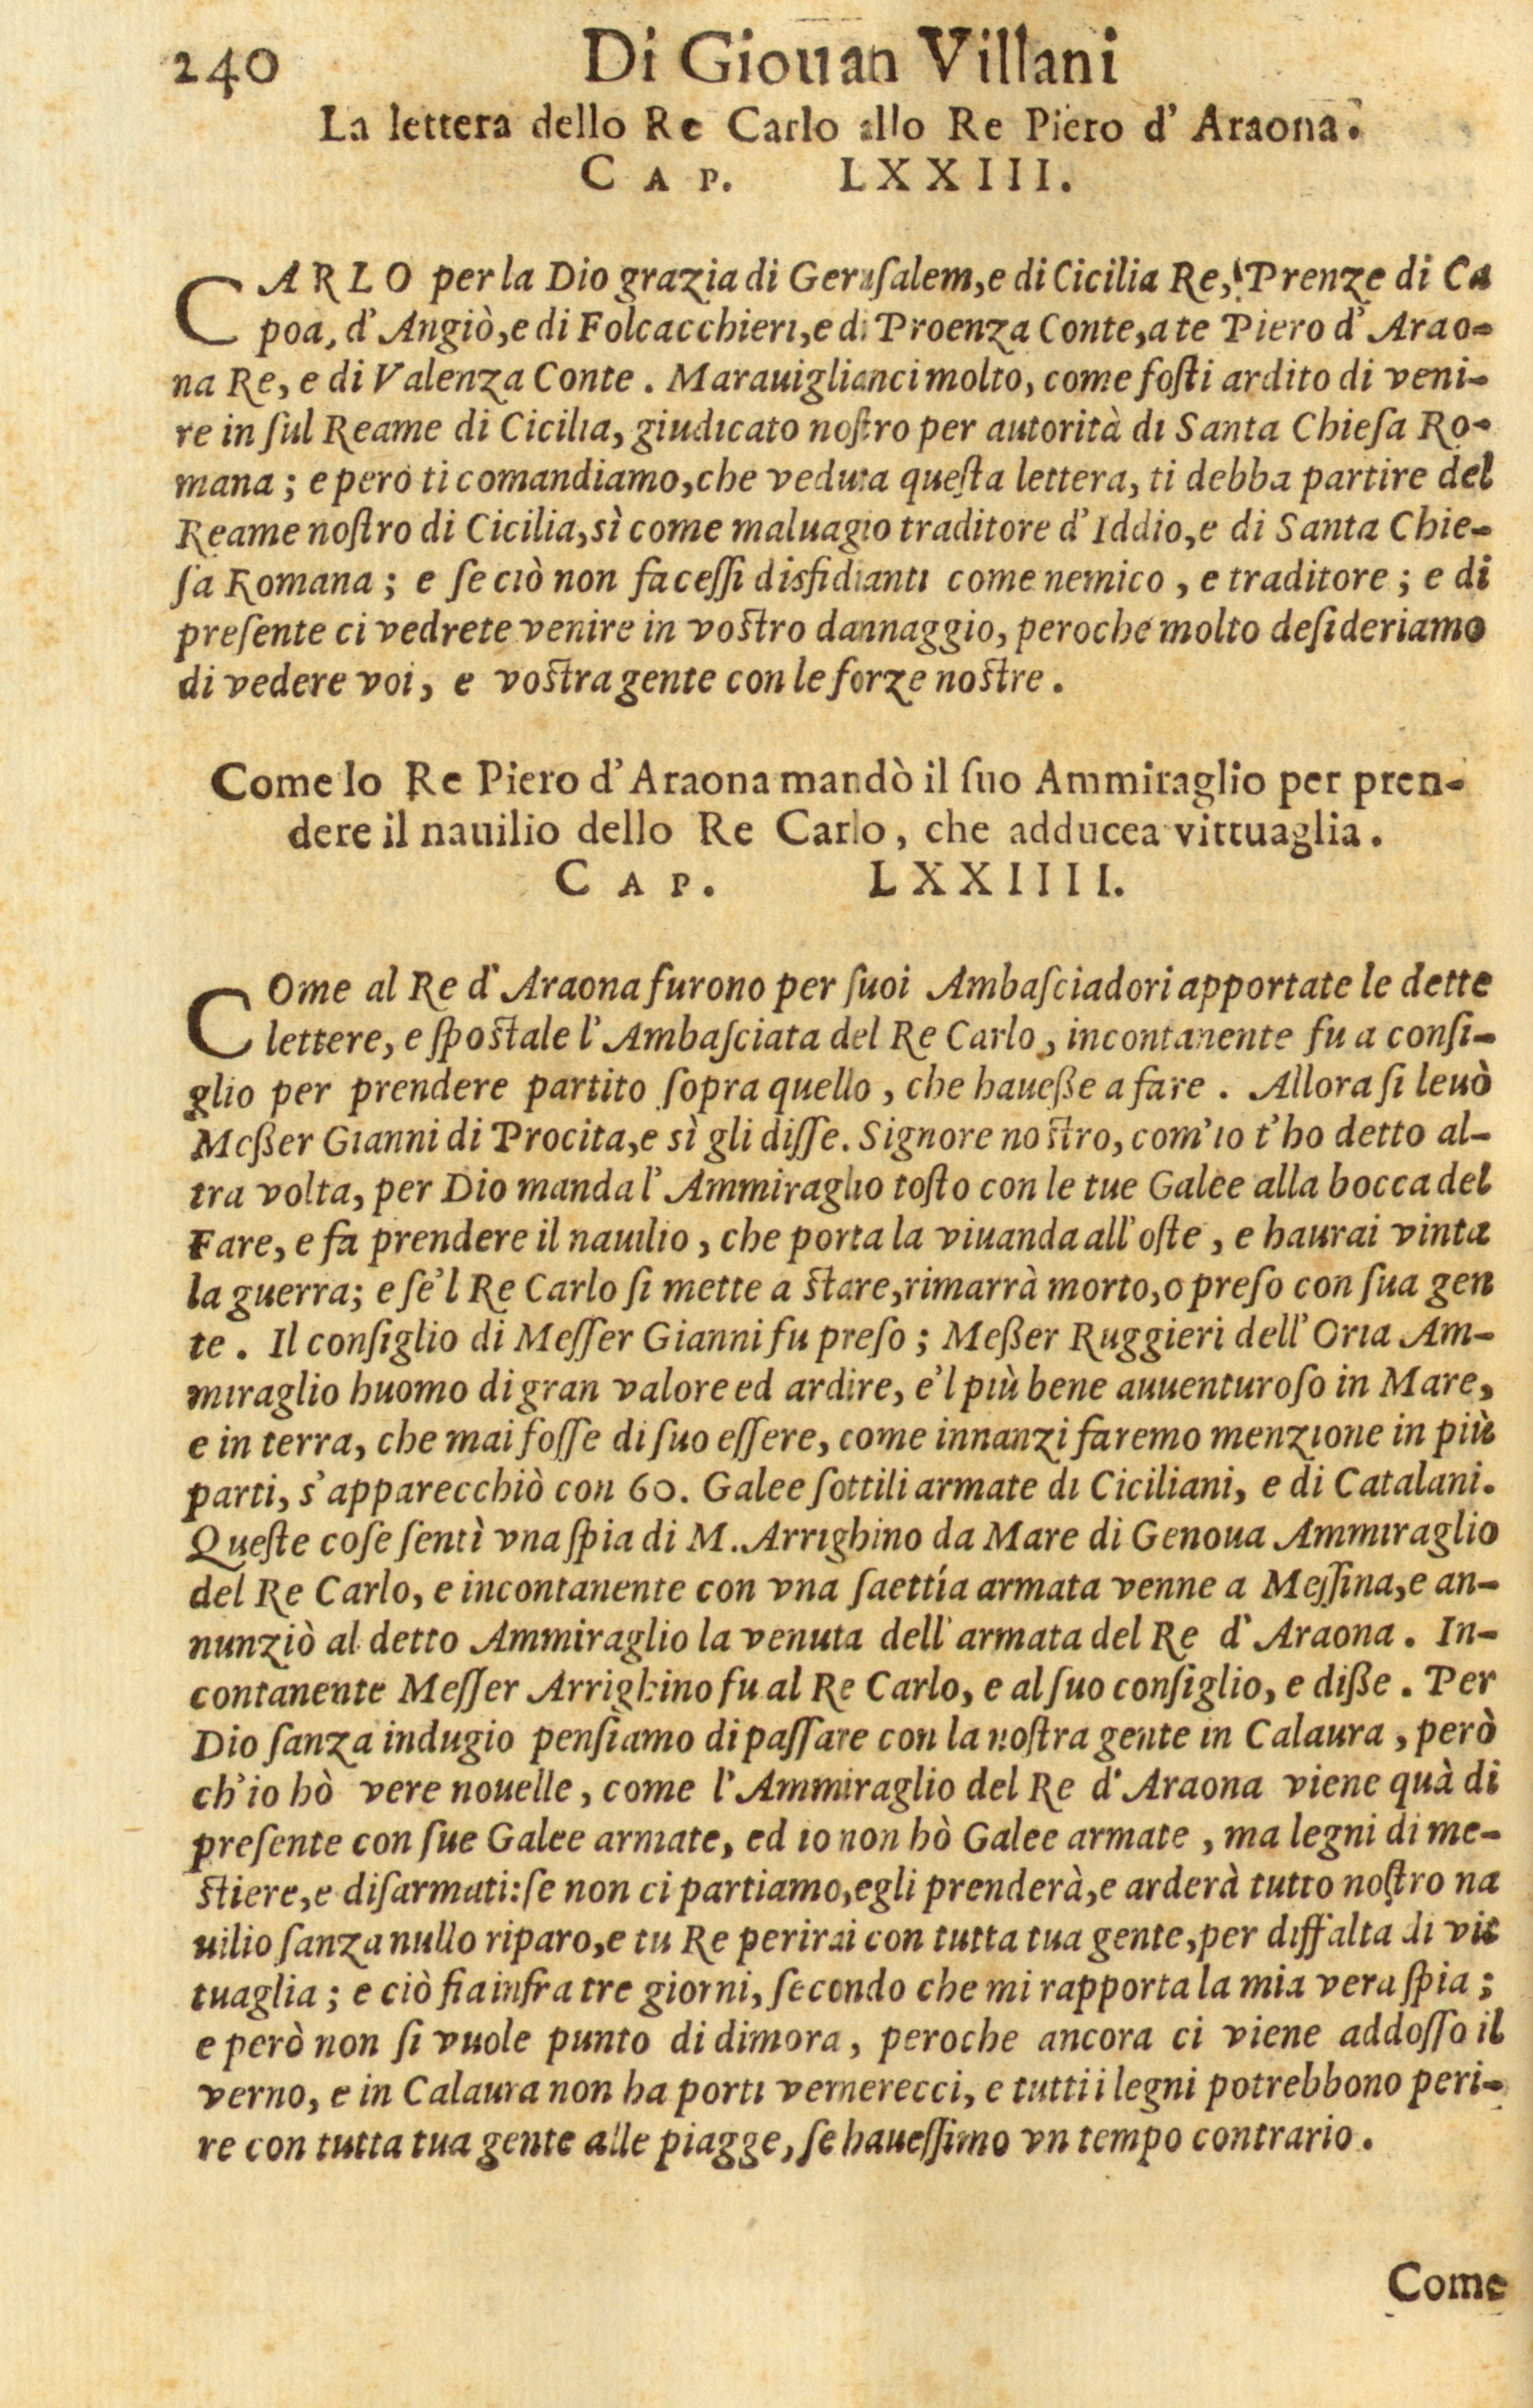 240 Di Giouan Villani
La lettera dello Re Carlo allo Re Piero d' Araona.
CAP. LXXIII.
CARLO per la Dio grazia di Gerusalem, e di Cicilia Re, Prenze di Ca
poa, d' Angiò, e di Folcacchieri, e di Proenza Conte, a te Piero d' Arao-
na Re, e di Valenza Conte. Marauiglianci molto, come fosti ardito di veni-
re in sul Reame di Cicilia, giudicato nostro per autorità di Santa Chiesa Ro-
mana; e però ti comandiamo, che veduta questa lettera, ti debba partire del
Reame nostro di Cicilia, sì come maluagio traditore d' Iddio, e di Santa Chie-
sa Romana; e se ciò non facessi disfidianti come nemico, e traditore; e di
presente ci vedrete venire in vostro dannaggio, peroche molto desideriamo
di vedere voi, e vostra gente con le forze nostre.
Come lo Re Piero d' Araona mandò il suo Ammiraglio per pren-
dere il nauilio dello Re Carlo, che adducea vittuaglia.
CAP. LXXIIII.
COme al Re d' Araona furono per suoi Ambasciadori apportate le dette
lettere, e spostale l' Ambasciata del Re Carlo, incontanente fu a consi-
glio per prendere partito sopra quello, che hauesse a fare. Allora si leuò
Messer Gianni di Procita, e sì gli disse. Signore nostro, com'io t'ho detto al-
tra volta, per Dio manda l' Ammiraglio tosto con le tue Galee alla bocca del
Fare, e fa prendere il nauilio, che porta la viuanda all' oste, e haurai vinta
la guerra; e se'l Re Carlo si mette a stare, rimarrà morto, o preso con sua gen
te. Il consiglio di Messer Gianni fu preso; Messer Ruggieri dell' Oria Am-
miraglio huomo di gran valore ed ardire, e'l più bene auuenturoso in Mare,
e in terra, che mai fosse di suo essere, come innanzi faremo menzione in più
parti, s'apparecchiò con 60. Galee sottili armate di Ciciliani, e di Catalani.
Queste cose sentì vna spia di M. Arrighino da Mare di Genoua Ammiraglio
del Re Carlo, e incontanente con vna saettía armata venne a Messina, e an-
nunziò al detto Ammiraglio la venuta dell' armata del Re d' Araona. In-
contanente Messer Arrighino fu al Re Carlo, e al suo consiglio, e disse. Per
Dio sanza indugio pensiamo di passare con la nostra gente in Calaura, però
ch'io hò vere nouelle, come l' Ammiraglio del Re d' Araona viene quà di
presente con sue Galee armate, ed io non hò Galee armate, ma legni di me-
stiere, e disarmati: se non ci partiamo, egli prenderà, e arderà tutto nostro na
uilio sanza nullo riparo, e tu Re perirai con tutta tua gente, per diffalta di vit
tuaglia; e ciò fia infra tre giorni, secondo che mi rapporta la mia vera spia;
e però non si vuole punto di dimora, peroche ancora ci viene addosso il
verno, e in Calaura non ha porti vernerecci, e tutti i legni potrebbono peri-
re con tutta tua gente alle piagge, se hauessimo vn tempo contrario.
Come